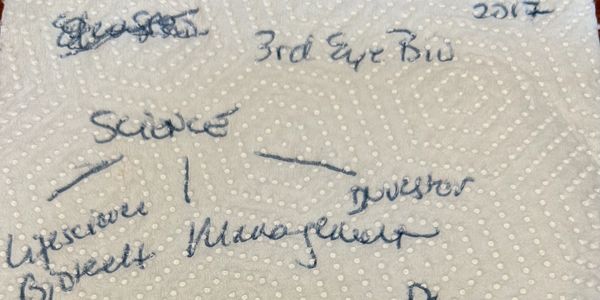 2017
3rd Eye Bio
SCIENCE
Investor
Lifescience Management
Biotech